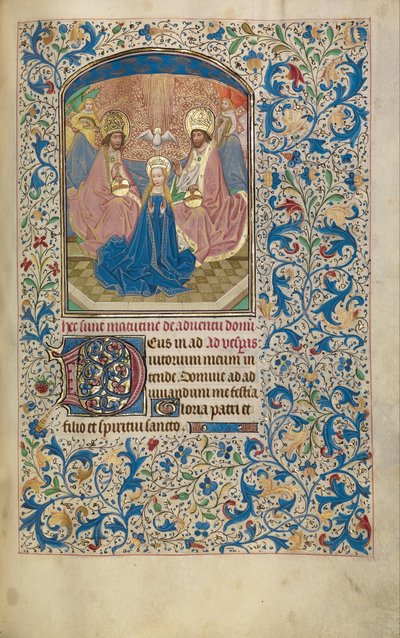 hec sunt matutine de adventu domi
Deus in ad Ad vesperas
iutorium meum in
tende. Domine ad ad
iuuandum me festi
Gloria patri et
filio et spiritui sancto.